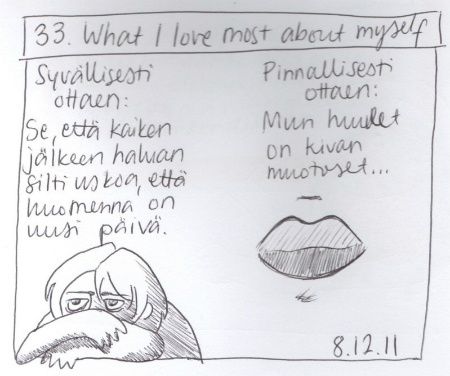 33. What I love most about myself
Syvällisesti
ottaen:
Se, että kaiken
jälkeen haluan
silti uskoa, että
huomenna on
uusi päivä.
Pinnallisesti
ottaen:
Mun huulet
on kivan
muotoset...
8.12.11